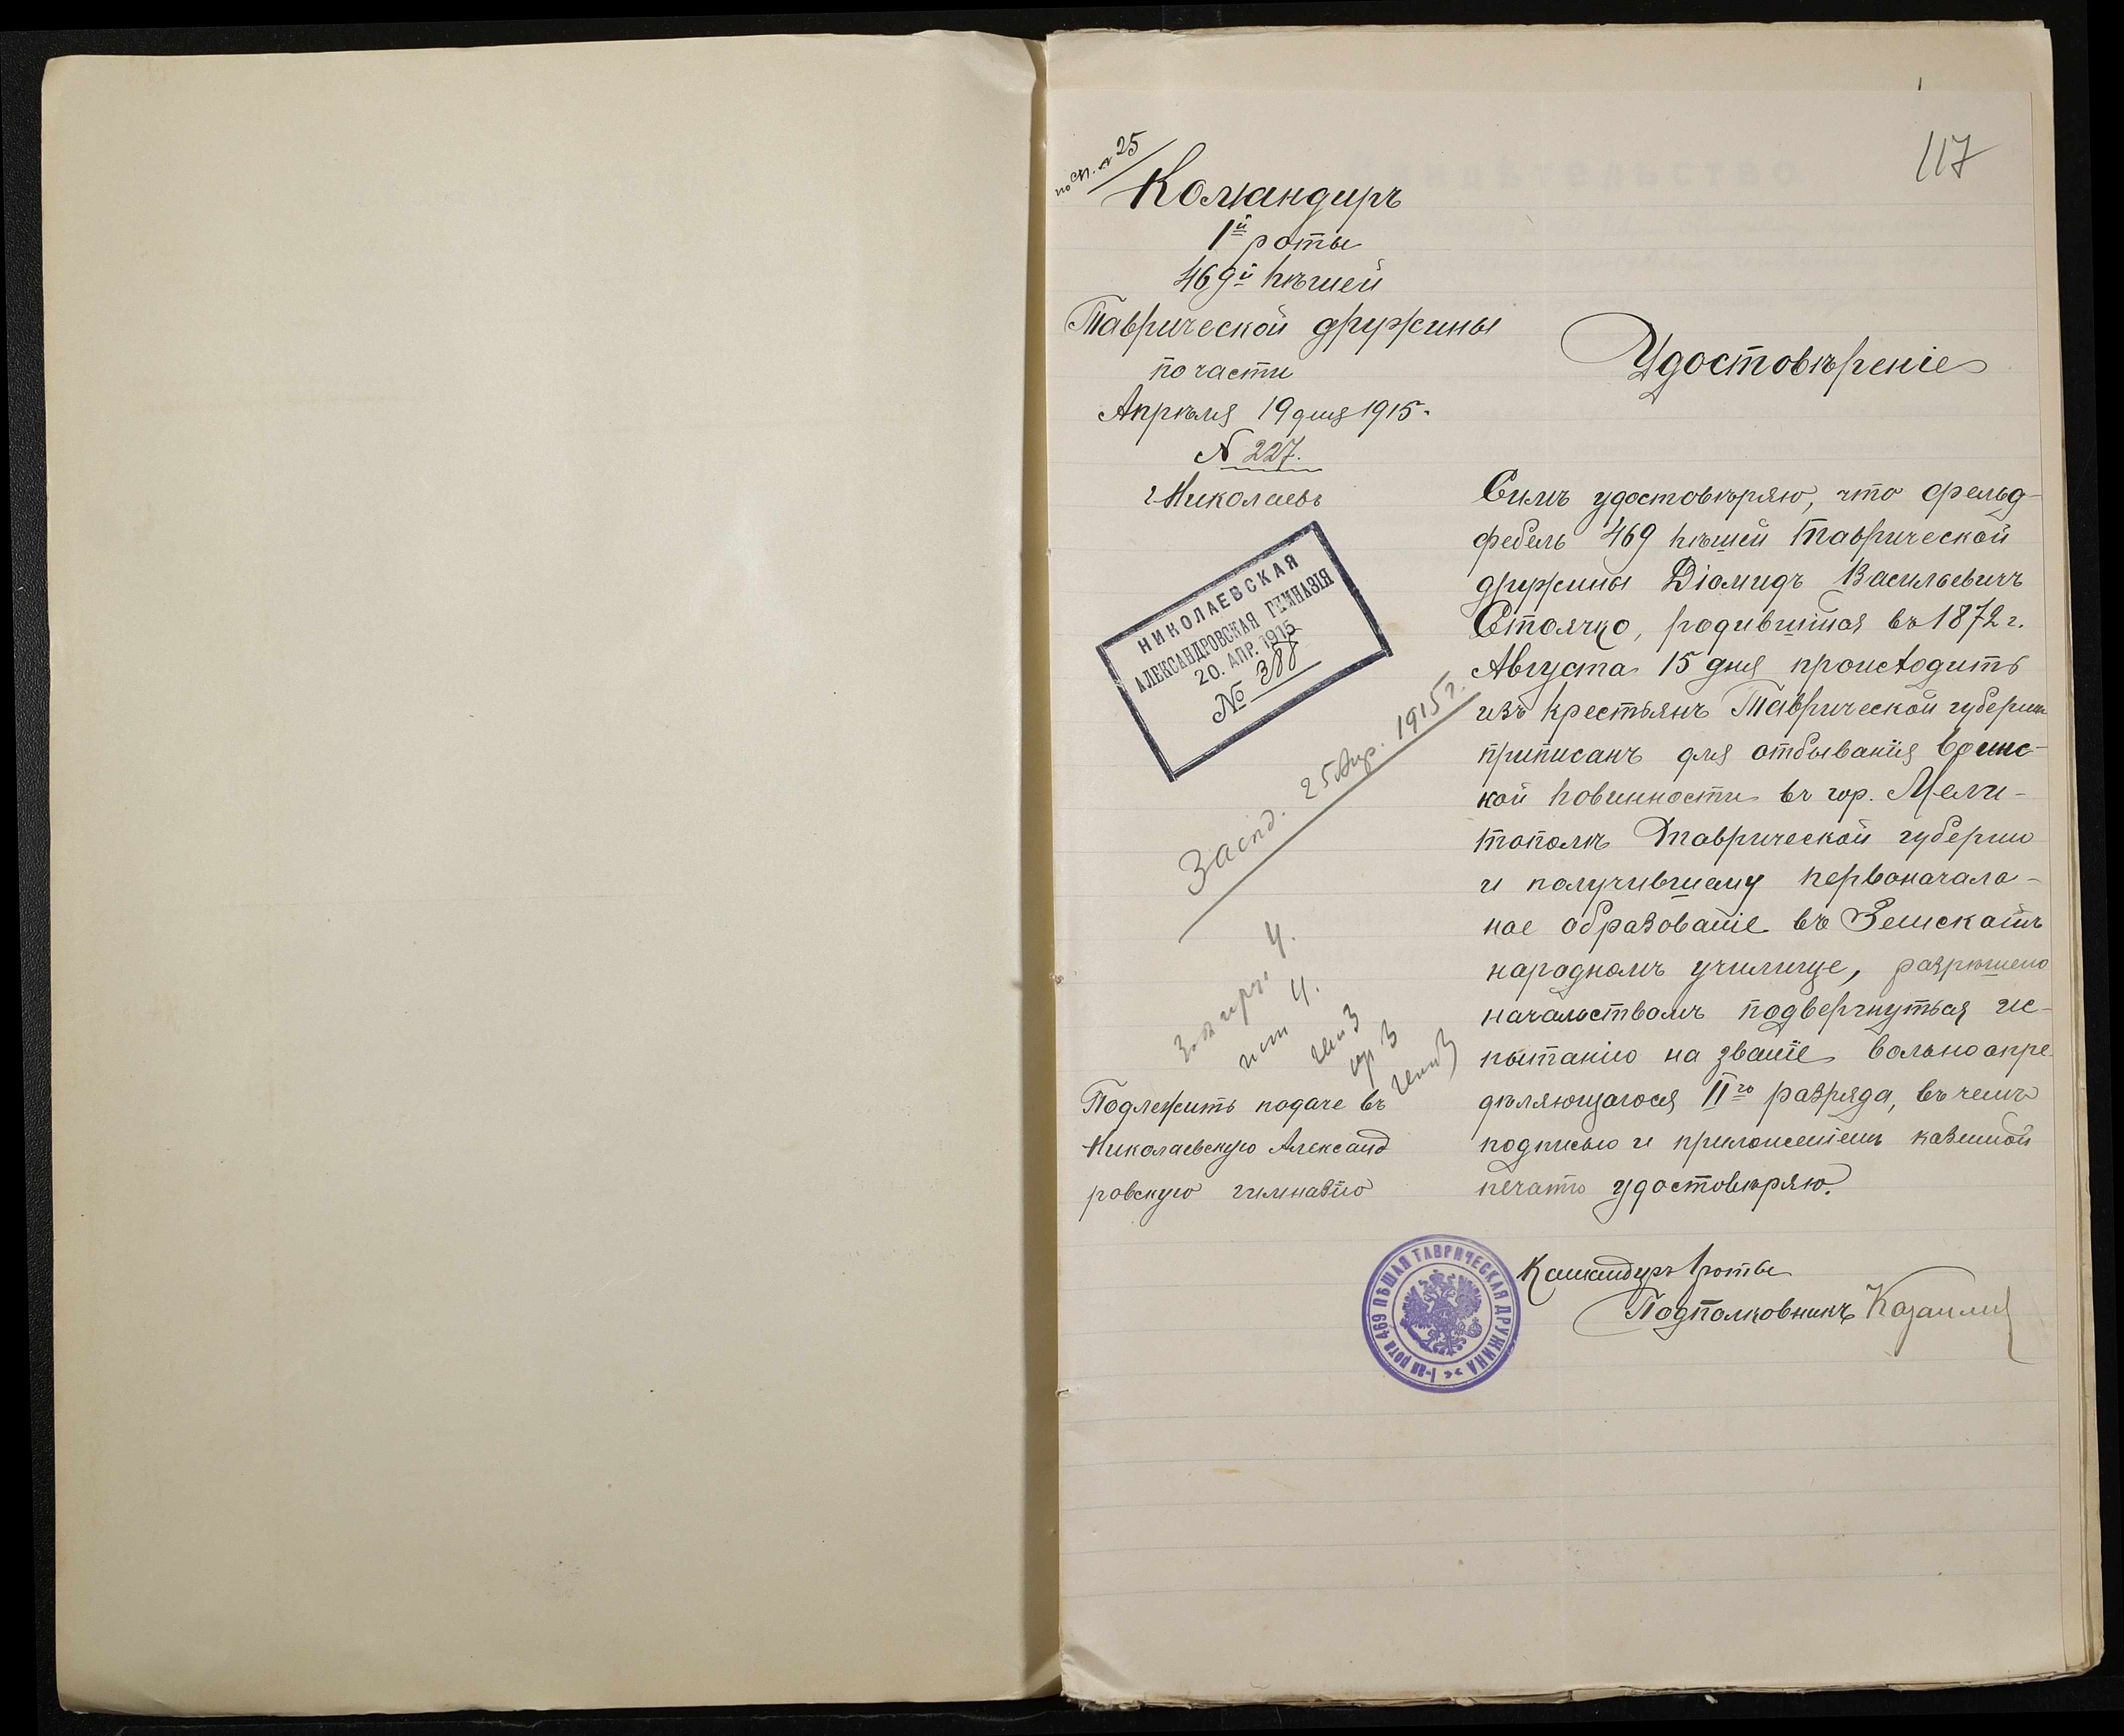 117
по сп. № 25
Командиръ
1й роты
469й пѣшей
Таврической дружины
по части
Апрѣля 19 дня 1915.
№ 227.
г. Николаевъ
НИКОЛАЕВСКАЯ
АЛЕКСАНДРОВСКАЯ ГИМНАЗІЯ
20. АПР. 1915
№ 388
25 Апр. 1915 г.
Подлежитъ подаче въ
Николаевскую Александ
ровскую гимназію
Удостовѣреніе
Симъ удостовѣряю, что фельд-
фебель 469 пѣшей Таврической
дружины Діомидъ Васильевичъ
Стоячко, родившійся въ 1872 г.
Августа 15 дня происходитъ
изъ крестьянъ Таврической губерніи
приписанъ для отбыванія воинс-
кой повинности въ гор. Мели-
тополѣ Таврической губерніи
и получившему первоначаль-
ное образованіе въ Земскомъ
народномъ училище, разрѣшено
начальствомъ подвергнуться ис-
пытанію на званіе вольноопре-
дѣляющагося IIго разряда, въ чемъ
подписью и приложеніемъ казенной
печати удостовѣряю.
Командиръ 1 роты
Подполковникъ
1-ая рота 469 ПѢШАЯ ТАВРИЧЕСКАЯ ДРУЖИНА